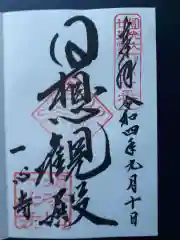 奉拝
令和四年元月十日
日想観殿
一心寺